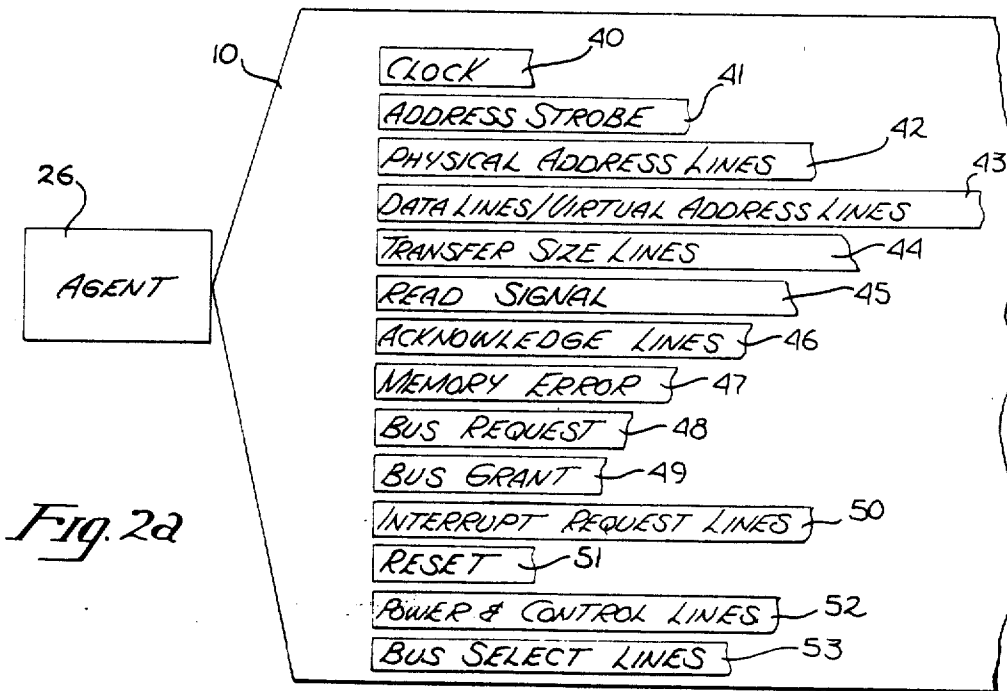 10
CLOCK 40
ADDRESS STROBE 41
PHYSICAL ADDRESS LINES 42
DATA LINES/VIRTUAL ADDRESS LINES 43
TRANSFER SIZE LINES 44
READ SIGNAL 45
ACKNOWLEDGE LINES 46
MEMORY ERROR 47
BUS REQUEST 48
BUS GRANT 49
INTERRUPT REQUEST LINES 50
RESET 51
POWER & CONTROL LINES 52
BUS SELECT LINES 53
26
AGENT
Fig. 2a